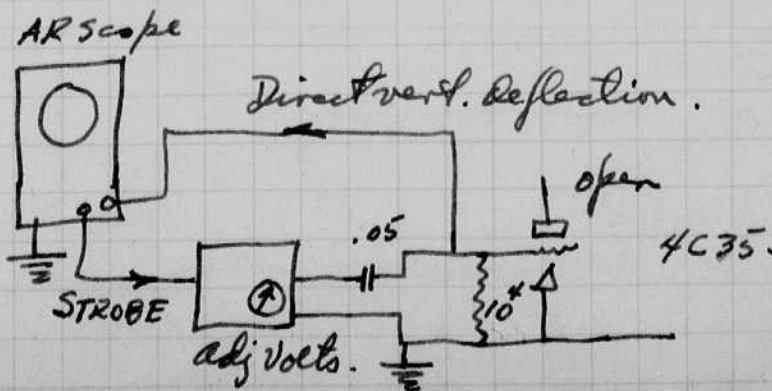 AR Scope
Direct vert. deflection.
open
.05
4C35.
STROBE
10⁴
adj Volts.